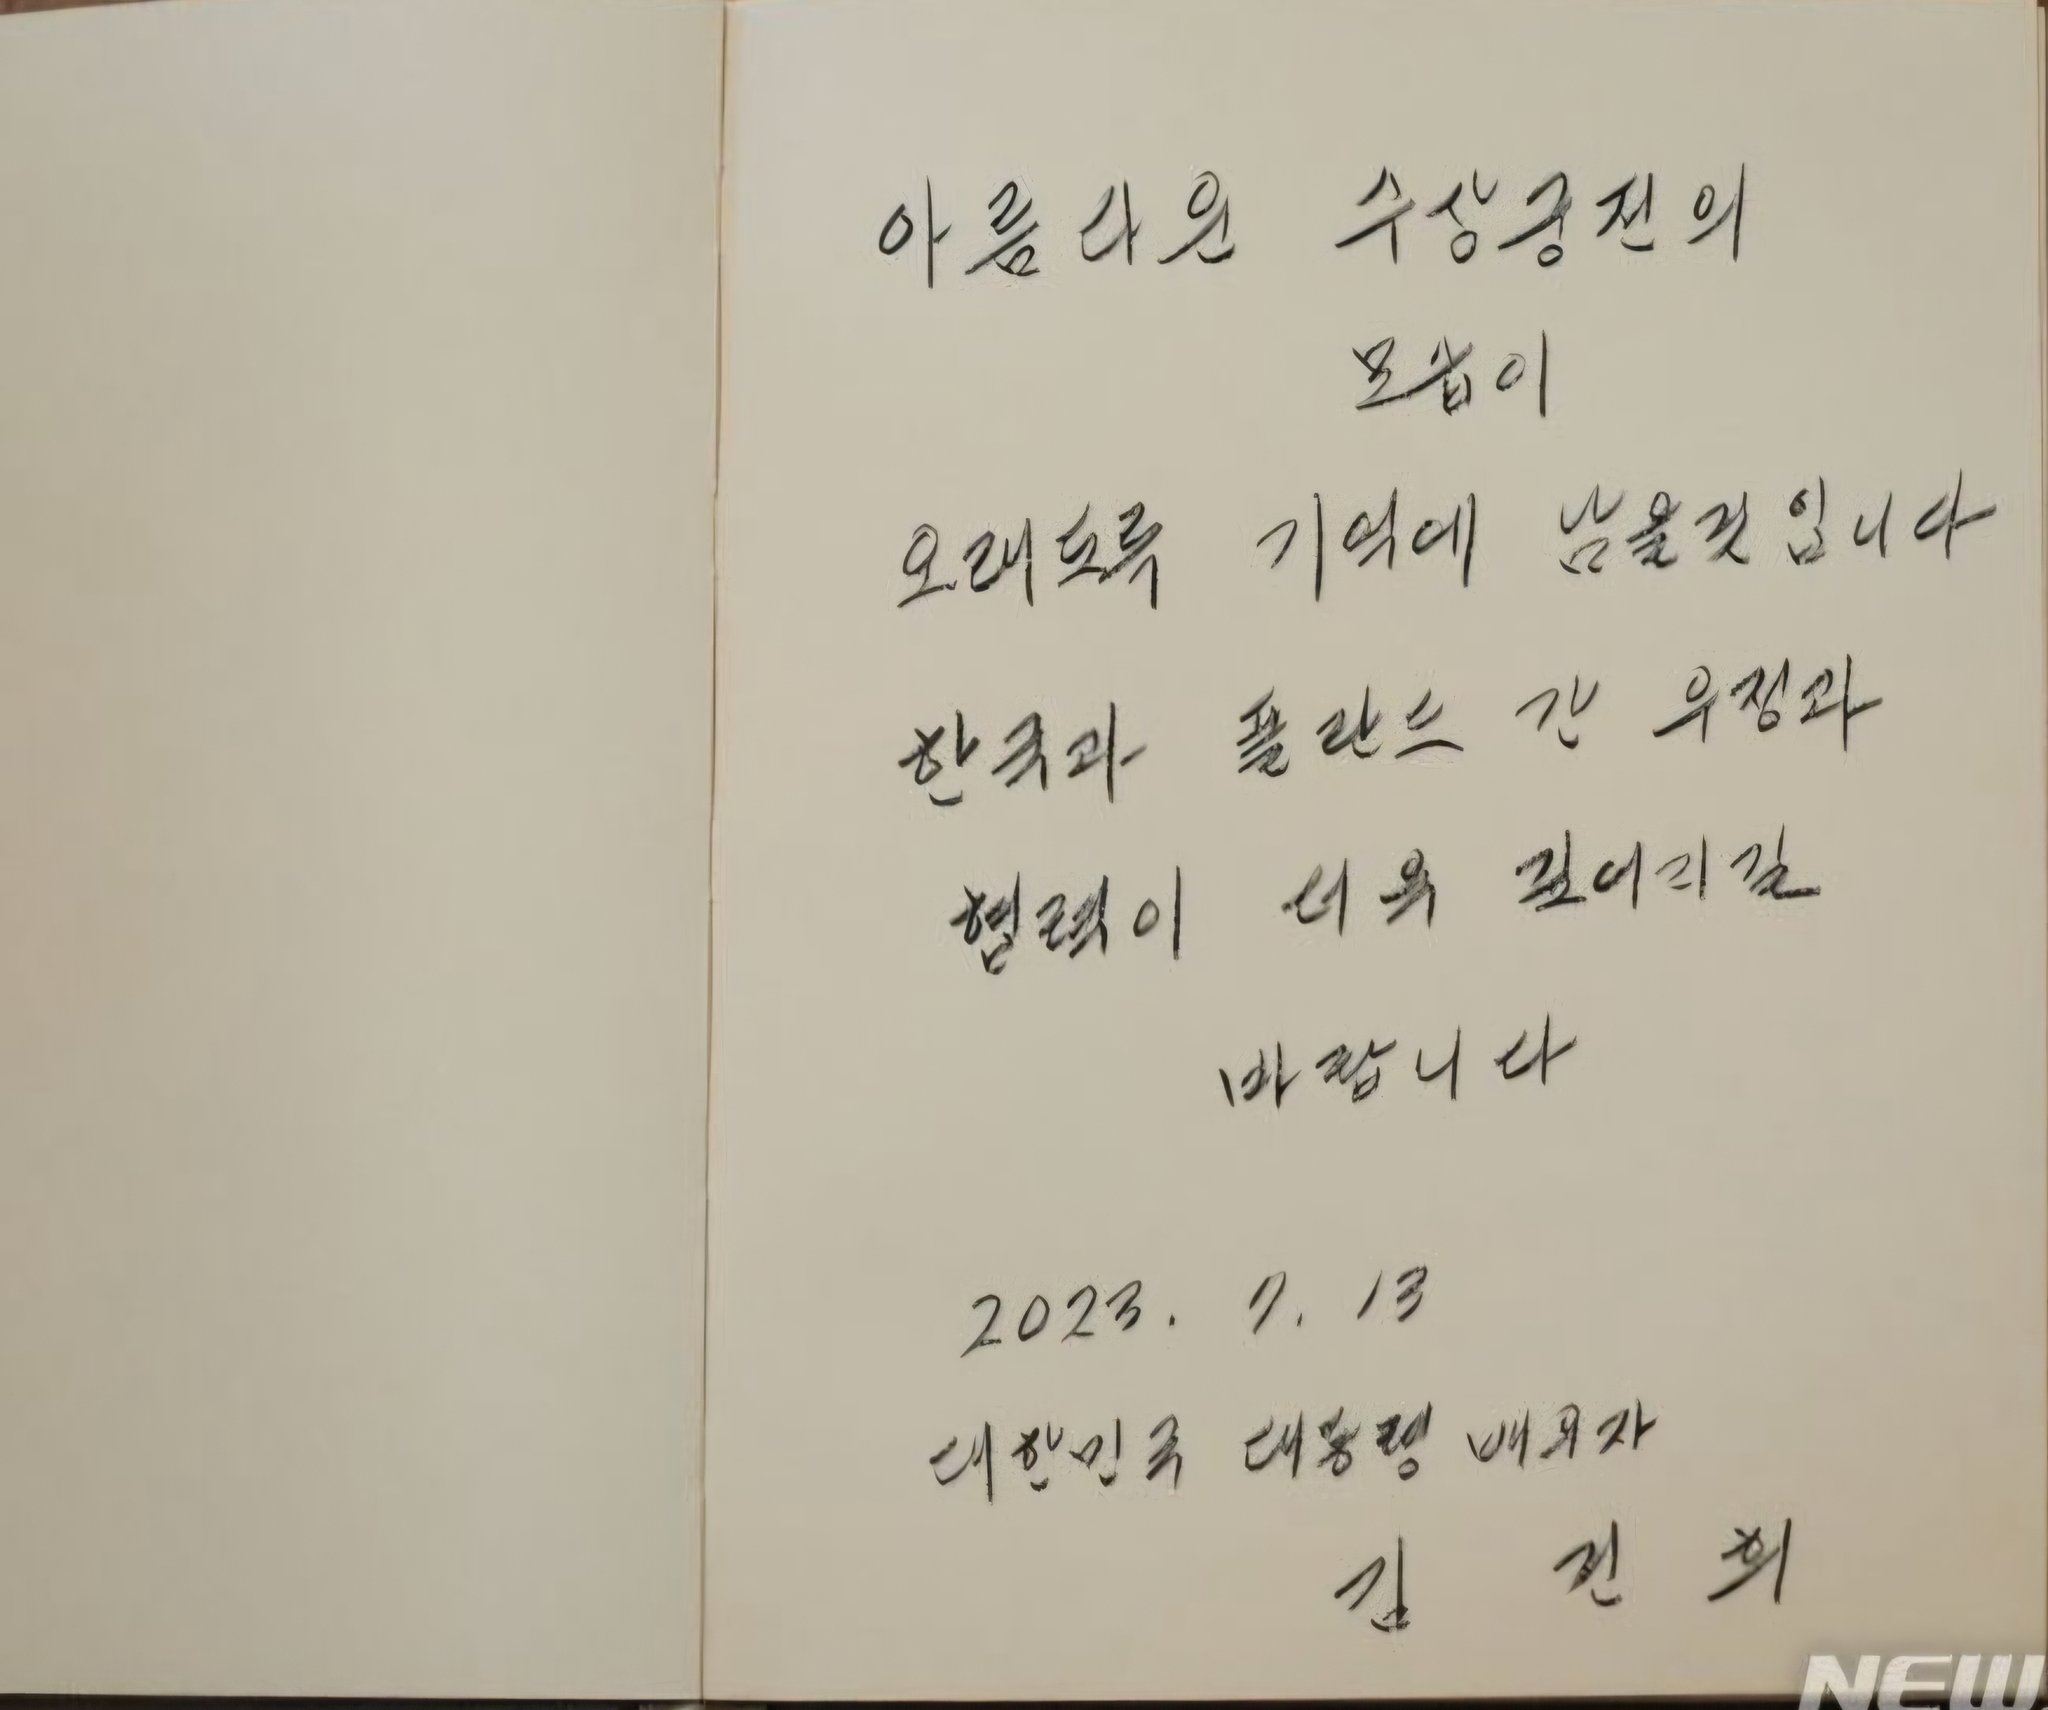 아름다운 수상궁전의
모습이
오래도록 기억에 남을것입니다
한국과 폴란드 간 우정과
협력이 더욱 깊어지길
바랍니다
2023. 7. 13
대한민국 대통령 배우자
김 건 희
NEW